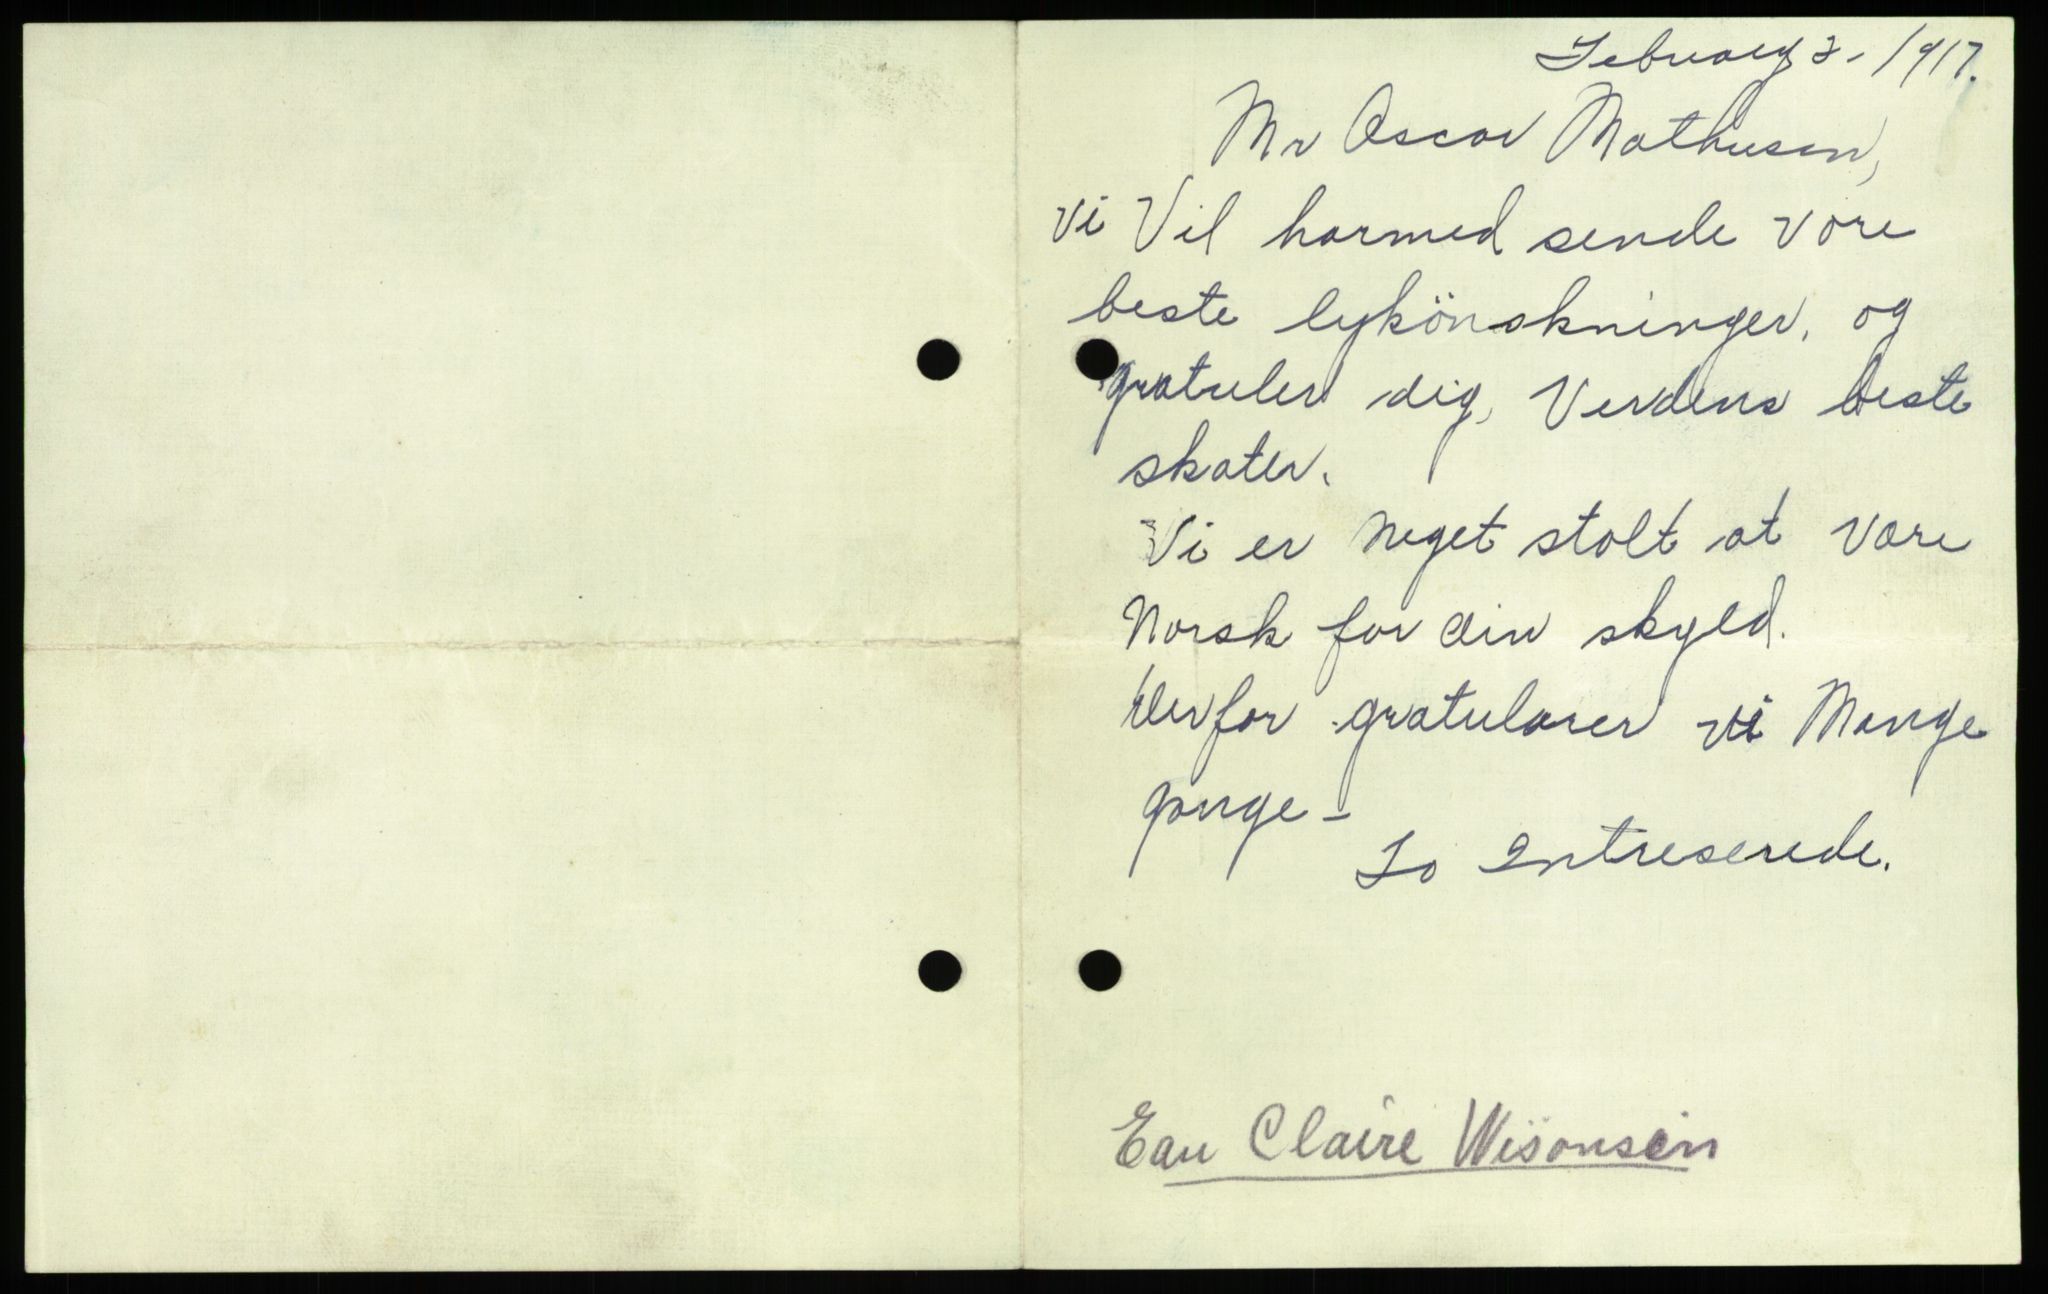 February 2 - 1917.
Mr Oscar Mathusen,
vi Vil harmed sende vore
beste lykönskninger, og
gratuler dig, Verdens beste
skater.
Vi er meget stolt at være
Norsk for din skyld.
Derfor gratularer vi Mange
gange -
To Intreserede.
Eau Claire Wisonsin